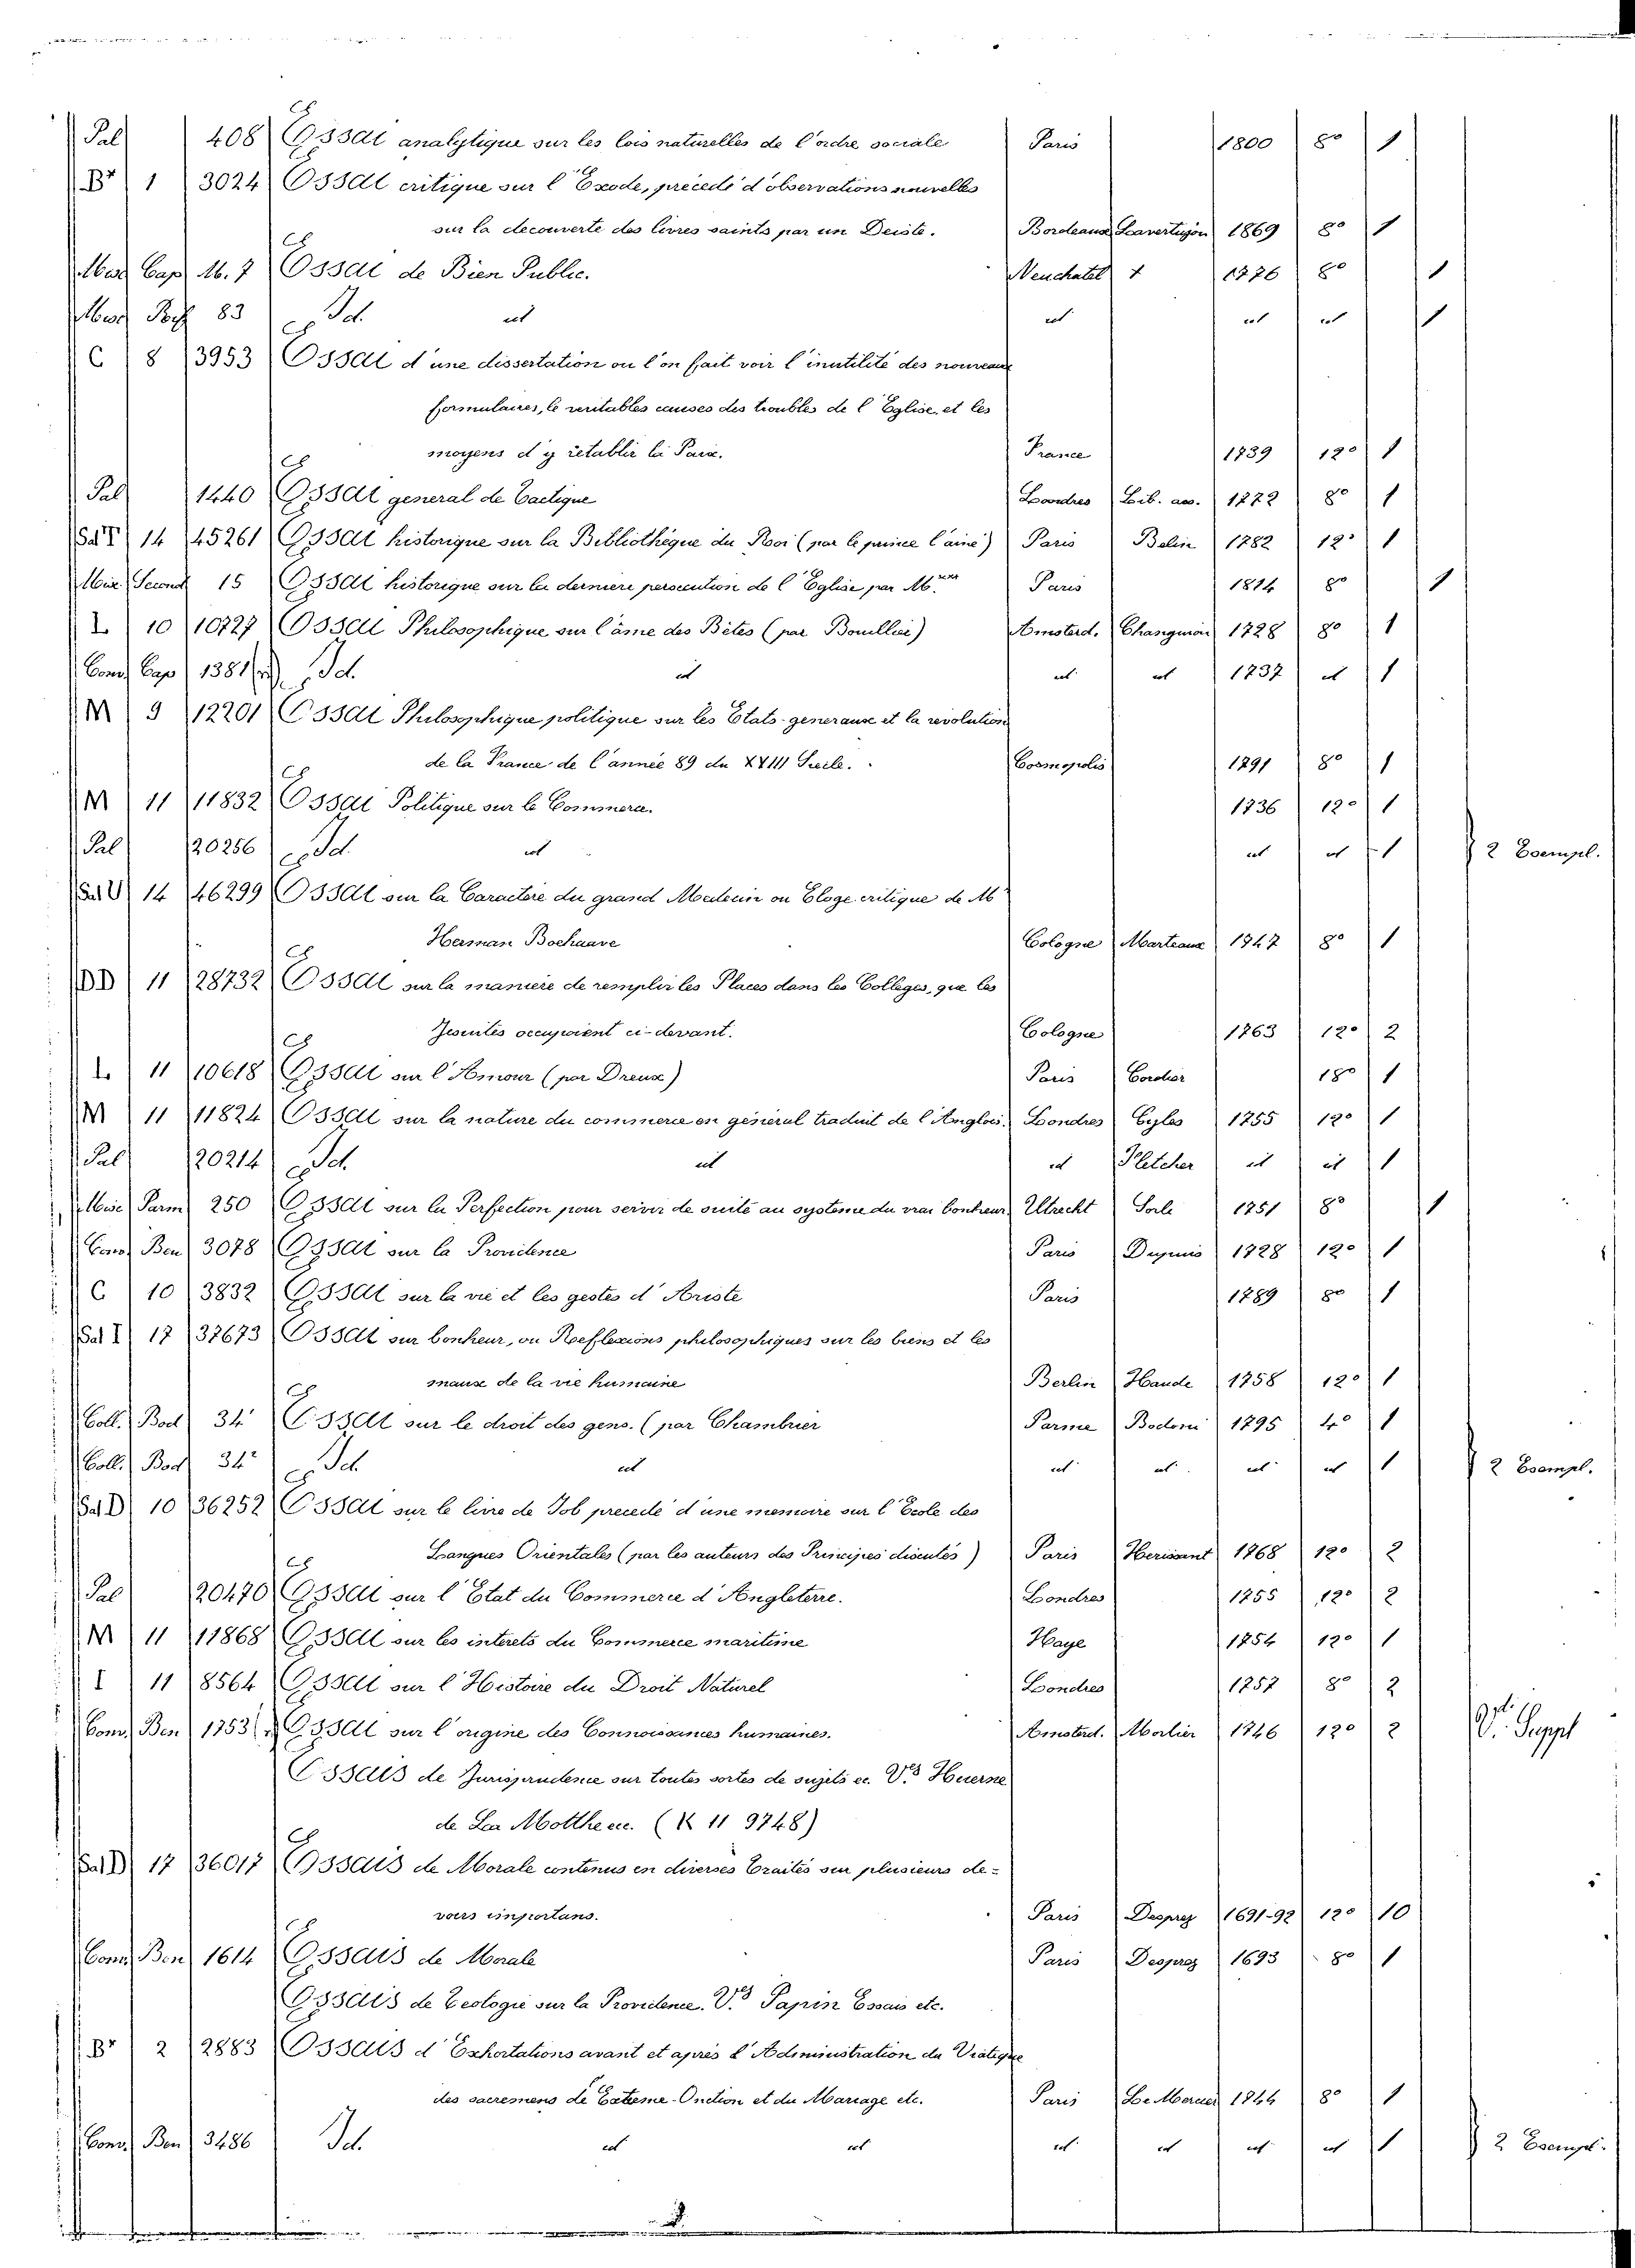 Pal 408 Essai analytique sur les lois naturelles de l'ordre sociale Paris 1800 8º 1
Br 1 3024 Essai critique sur l'Exode, precedé d'observations nouvelles
sur la decouverte des livres saints par un Deiste. Bordeaux Lavertujon 1869 8º 1
Misc Cap M. 7 Essai de Bien Public. Neuchatel 1776 8º 1
83 Id. id id id id 1
C 8 3953 Essai d'une dissertation ou l'on fait voir l'inutilité des nouveaux
formulaires, le veritables causes des troubles de l'Eglise, et les
moyens d'y retablir la Paix. France 1739 12º 1
Pal 1440 Essai general de Tactique Londres Lib. ass. 1772 8º 1
Sal T 14 45261 Essai historique sur la Bibliothèque du Roi (par le prince l'ainé) Paris Belin 1782 12º 1
Misc Second 15 Essai historique sur la derniere persecution de l'Eglise par M. Paris 1814 8º 1
L 10 10727 Essai Philosophique sur l'âme des Bêtes (par Boullier) Amsterd. Changuion 1728 8º 1
Conv Cap 1381 Id. id id id 1737 id 1
M 9 12201 Essai Philosophique politique sur les Etats-generaux et la revolution
de la France de l'année 89 du XVIII Siecle. Cosmopolis 1791 8º 1
M 11 11832 Essai Politique sur le Commerce. 1736 12º 1
Pal 20256 Id. id id id 1 2 Esempl.
Sal U 14 46299 Essai sur la Caractère du grand Medecin ou Eloge critique de M
Herman Boehaave Cologne Marteaux 1747 8º 1
DD 11 28732 Essai sur la maniere de remplir les Places dans les Colleges, que les
Jesuites occupoient ci-devant. Cologne 1763 12º 2
L 11 10618 Essai sur l'Amour (par Dreux) Paris Cordier 18º 1
M 11 11824 Essai sur la nature du commerce en général traduit de l'Anglois. Londres Gyles 1755 12º 1
Pal 20214 Id. id id Fletcher id id 1
Misc Parm 250 Essai sur la Perfection pour servir de suite au systeme du vrai bonheur Utrecht Sorle 1751 8º 1
Conv Ben 3078 Essai sur la Providence Paris Dupuis 1728 12º 1
C 10 3832 Essai sur la vie et les gestes d'Ariste Paris 1789 8º 1
Sal I 17 37673 Essai sur bonheur, ou Reflexions philosophiques sur les biens et les
maux de la vie humaine Berlin Haude 1758 12º 1
Coll. Bod 34 Essai sur le droit des gens. (par Chambrier Parme Bodoni 1795 4º 1
Coll. Bod 34² Id. id id id id id 1 2 Esempl.
Sal D 10 36252 Essai sur le livre de Job precedé d'une memoire sur l'Ecole des
Langues Orientales (par les auteurs des Principes discutés) Paris Herissant 1768 12º 2
Pal 20470 Essai sur l'Etat du Commerce d'Angleterre. Londres 1755 12º 2
M 11 11868 Essai sur les interets du Commerce maritime Haye 1754 12º 1
I 11 8564 Essai sur l'Histoire du Droit Naturel Londres 1757 8º 2
Conv Ben 1753 Essai sur l'origine des Connoissances humaines. Amsterd. Morlier 1746 12º 2 V. Suppl
Essais de Jurisprudence sur toutes sortes de sujets ec. V.s Huerne
de La Motthe ec. (K 11 9748)
Sal D 17 36017 Essais de Morale contenus en diverses Traités sur plusieurs de-
voirs importans. Paris Desprez 1691-92 12º 10
Conv Ben 1614 Essais de Morale Paris Desprez 1693 8º 1
Essais de Teologie sur la Providence. V.s Papin Essais etc.
Br 2 2883 Essais d'Exhortations avant et après l'Administration du Viatique
des sacremens de Exteme-Onction et du Mariage etc. Paris Le Mercier 1744 8º 1
Conv Ben 3486 Id. id id id id id id 1 2 Esempl.